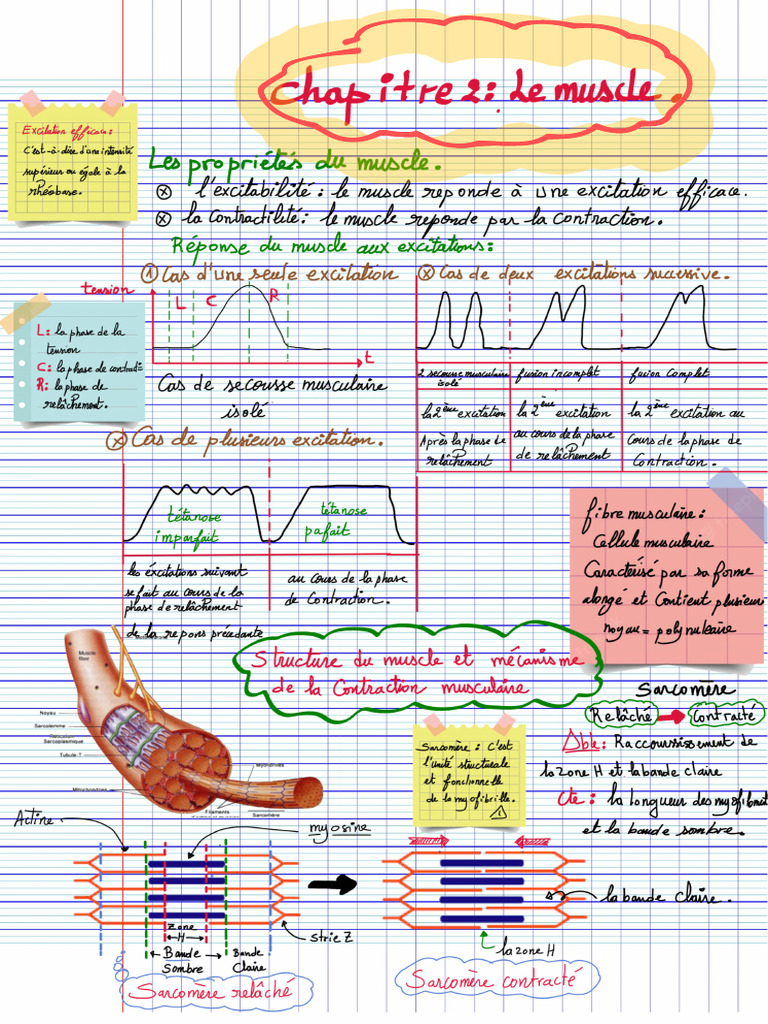 Chapitre 2: Le muscle.
Excitation efficace:
C'est-à-dire d'une intensité
supérieur ou égale à la
rhéobase.
Les propriétés du muscle.
l'excitabilité: le muscle reponde à une excitation efficace.
la contractilité: le muscle reponde par la contraction.
Réponse du muscle aux excitations:
1 Cas d'une seule excitation
tension
L C R
t
L: la phase de la
tension
C: la phase de
R: la phase de
relâchement.
Cas de secousse musculaire
isolé
Cas de deux excitations successive.
2 secousse musculaire
isolé
la 2ème excitation
Après la phase de
relâchement
fusion incomplet
la 2ème excitation
au cours de la phase
de relâchement
fusion complet
la 2ème excitation au
cours de la phase de
Contraction.
Cas de plusieurs excitation.
tétanose
imparfait
tétanose
pafait
les éxcitations suivant
se fait au cours de la
phase de relâchement
de la repons précédante
au cours de la phase
de Contraction.
fibre musculaire:
Cellule musculaire
Caractérisé par sa forme
alongé et Contient plusieur
noyau = polynucleaire
Structure du muscle et mécanisme
de la Contraction musculaire
Muscle
fiber
Noyau
Sarcolemme
Sarcoplasmique
Tubule T
Mitochondries
Myofibrilles
Filaments
Sarcomère
Sarcomère : C'est
l'unité structurale
et fonctionnelle
de la myofibrille.
Sarcomère
Relâché Contracté
Δble: Raccourssissement de
la zone H et la bande claire
Cte: la longueur des myofibril
et la bande sombre.
Actine
myosine
Zone
H
Bande
Sombre
Bande
Claire
strie Z
Sarcomère relâché
la bande claire.
la zone H
Sarcomère contracté